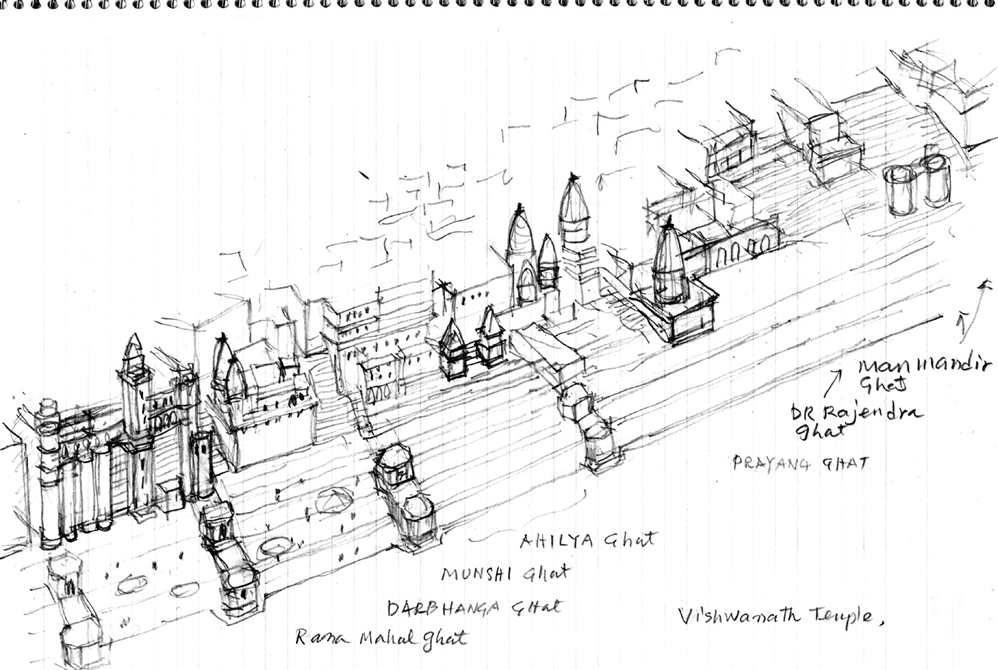 Man mandir
Ghat
DR Rajendra
Ghat
PRAYANG GHAT
AHILYA Ghat
MUNSHI Ghat
DARBHANGA GHat
Rana Mahal ghat
Vishwanath Temple,